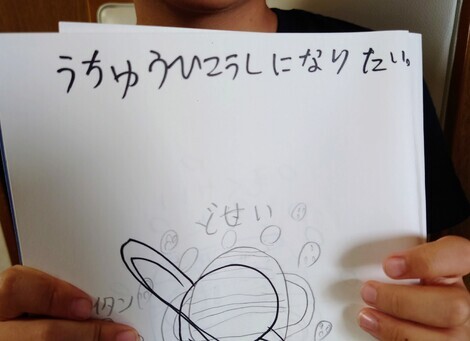 うちゅうひこうしになりたい。
どせい
タン